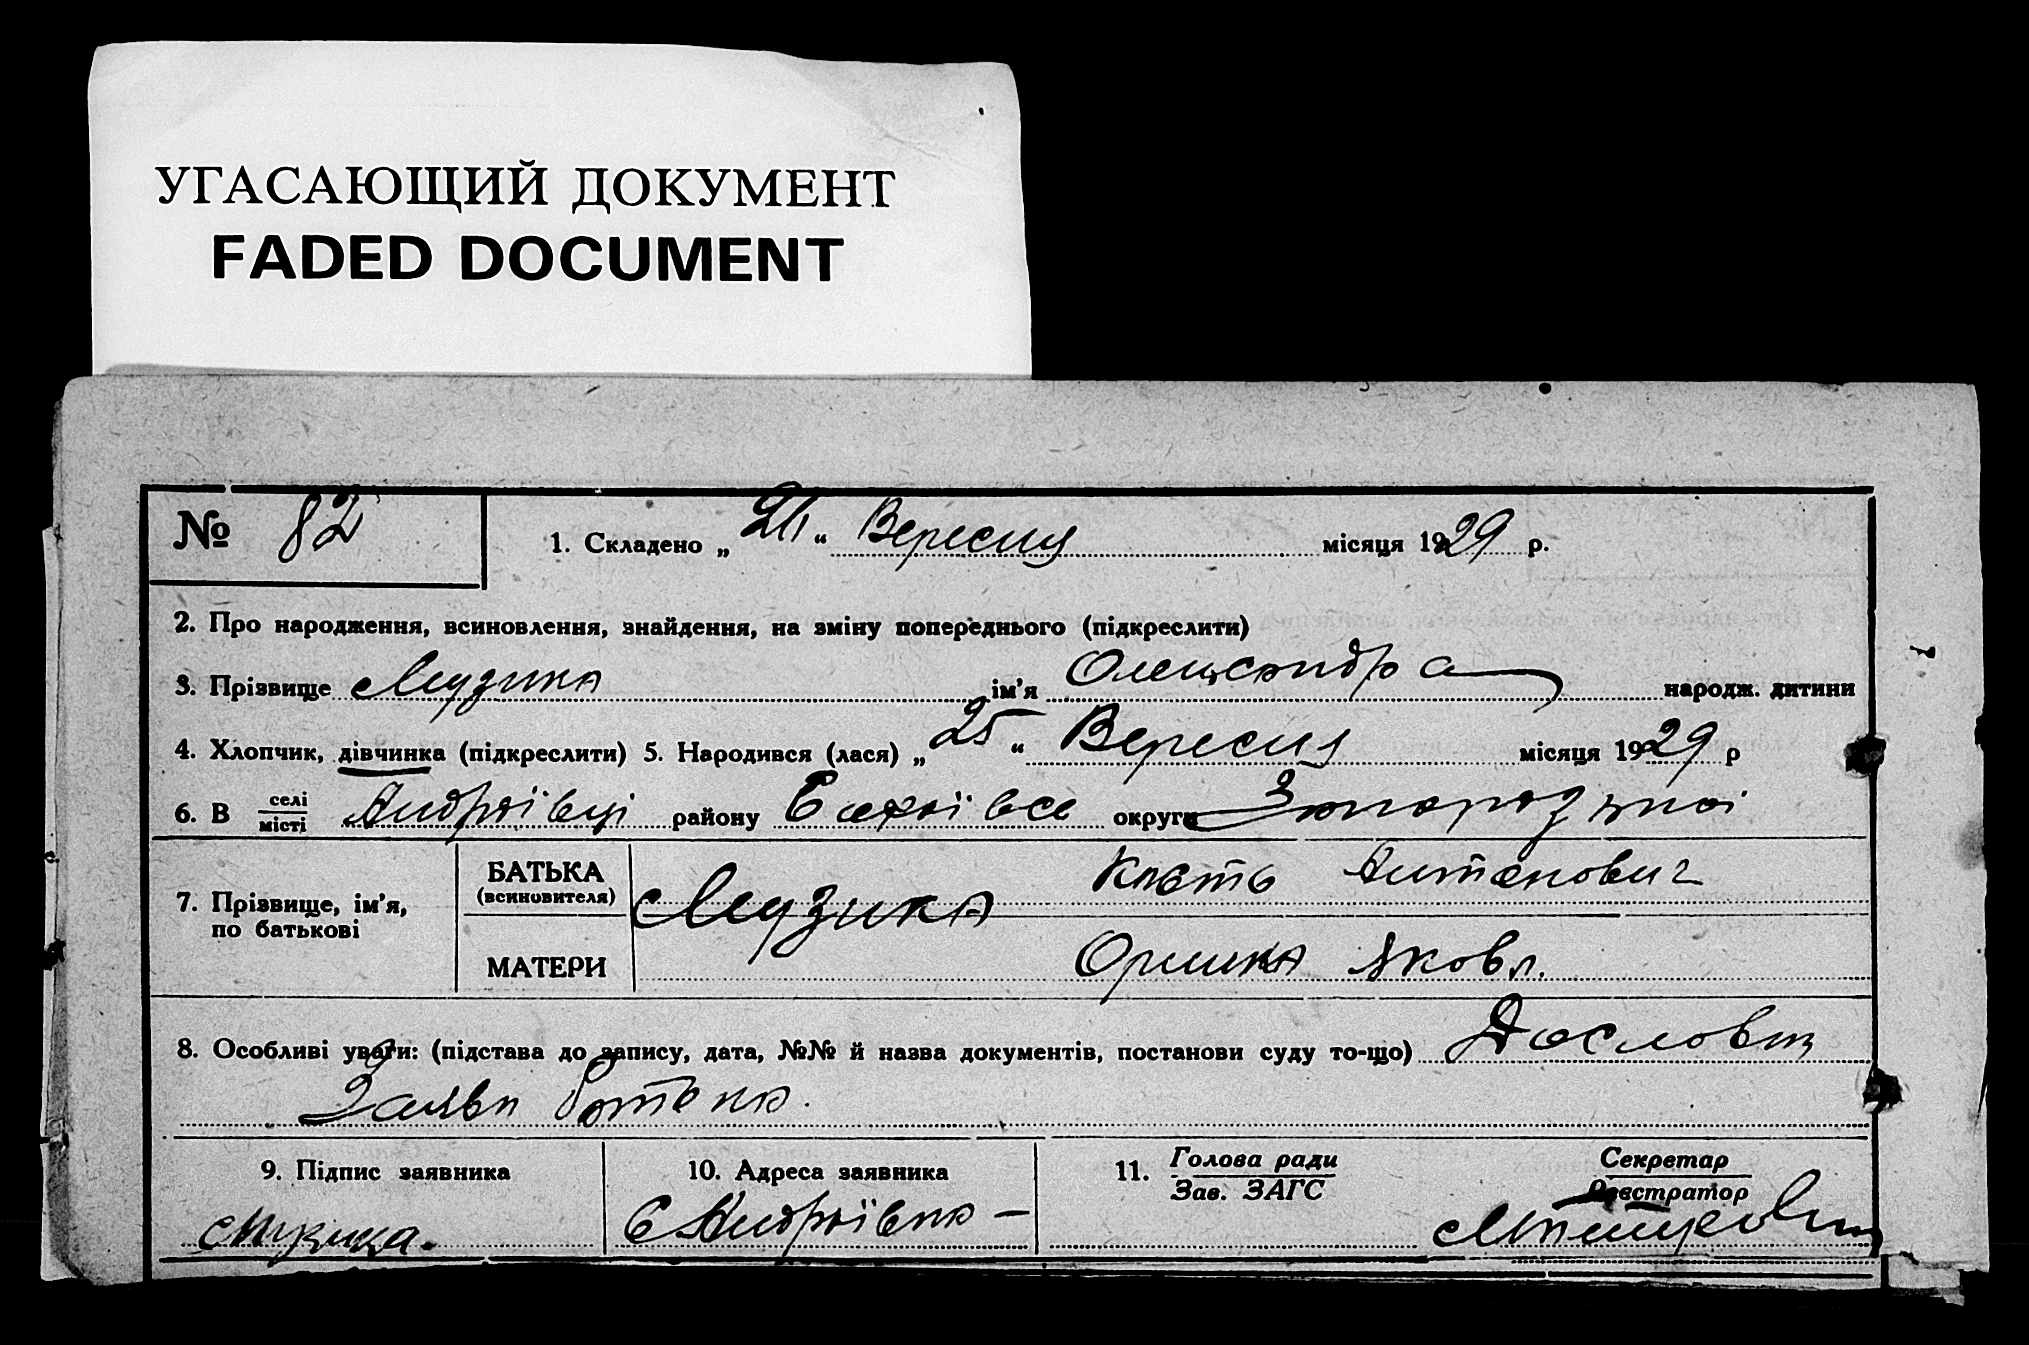 УГАСАЮЩИЙ ДОКУМЕНТ
FADED DOCUMENT
№ 82
1. Складено „ “ Вересня місяця 1929 р.
2. Про народження, всиновлення, знайдення, на зміну попереднього (підкреслити)
3. Прізвище Музика ім'я Олександра народж. дитини
4. Хлопчик, дівчинка (підкреслити) 5. Народився (лася) „25“ Вересня місяця 1929 р
6. В селі Андріївці району округи
місті
БАТЬКА
(всиновителя)
7. Прізвище, ім'я,
по батькові
Музика Антонович
МАТЕРИ Яковл.
8. Особливі уваги: (підстава до запису, дата, №№ й назва документів, постанови суду то-що)
Заяви батька.
9. Підпис заявника
Музика.
10. Адреса заявника
с Андріївка —
11. Голова ради
Зав. ЗАГС
Секретар
Реєстратор